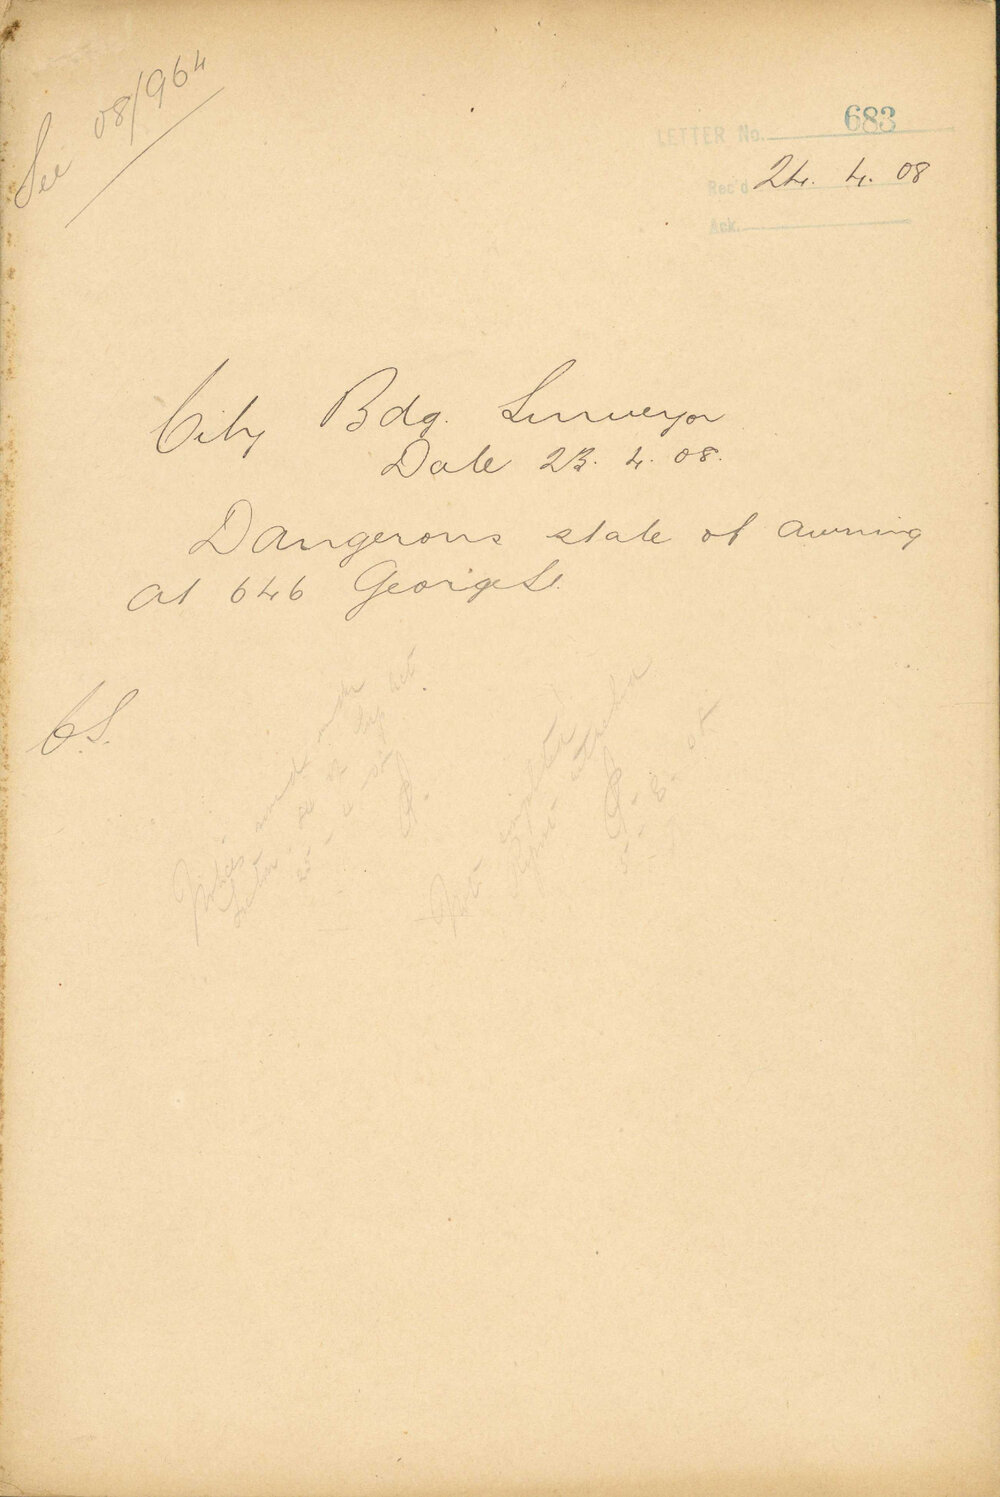 See 08/964
LETTER No. 683
Rec'd 24. 4. 08
Ack.
City Bdg. Surveyor
Date 23. 4. 08.
Dangerous state of awning
at 646 George St.
C.S.
Notices
under
Act
Not